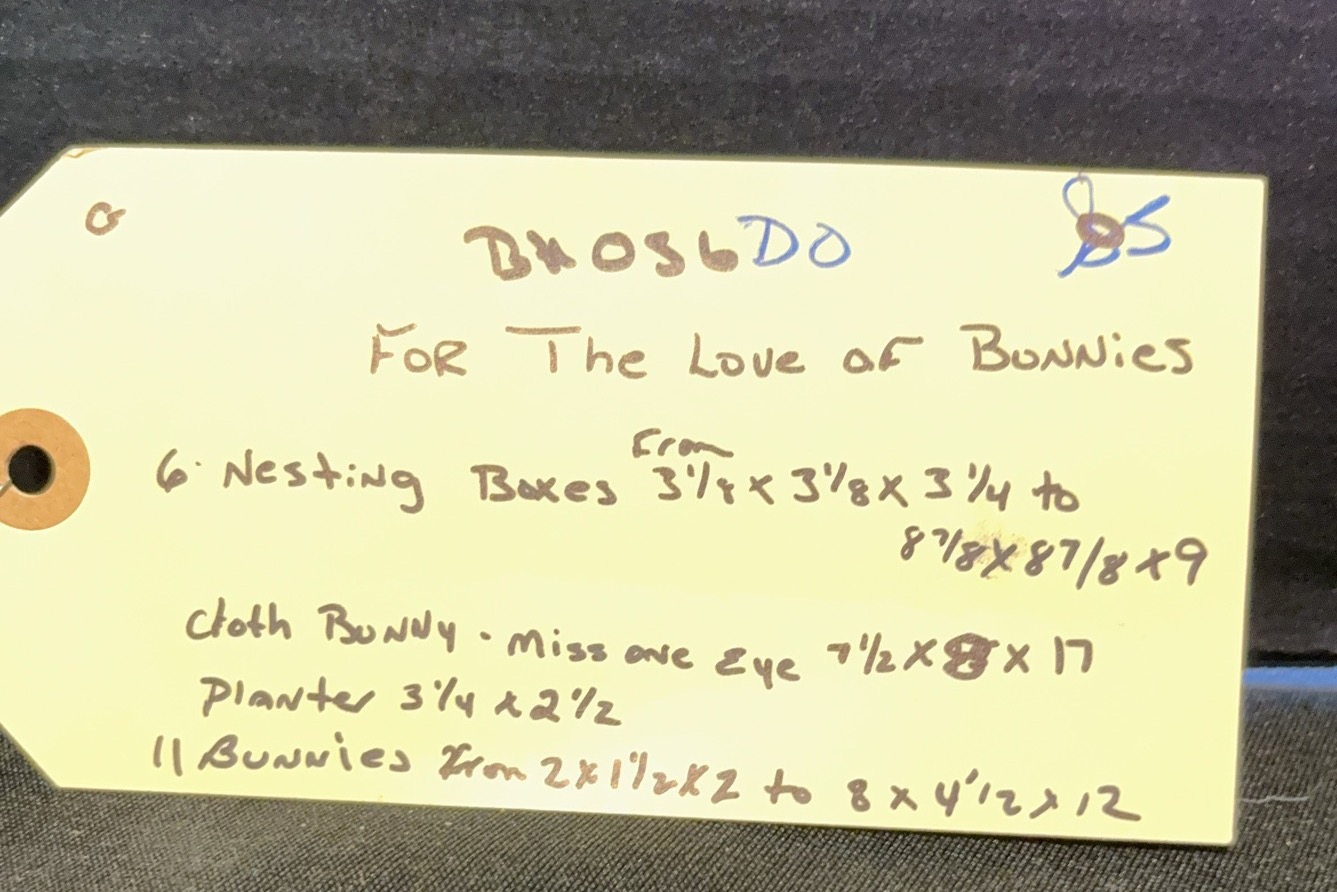 BX056DO
FOR The Love OF BUNNies
6. Nesting Boxes From 3 1/8 x 3 1/8 x 3 1/4 to
8 7/8 x 8 7/8 x 9
Cloth BUNNy . Miss one Eye 7 1/2 x 8 x 17
Planter 3 1/4 x 2 1/2
11 BUNNies From 2 x 1 1/2 x 2 to 8 x 4 1/2 x 12